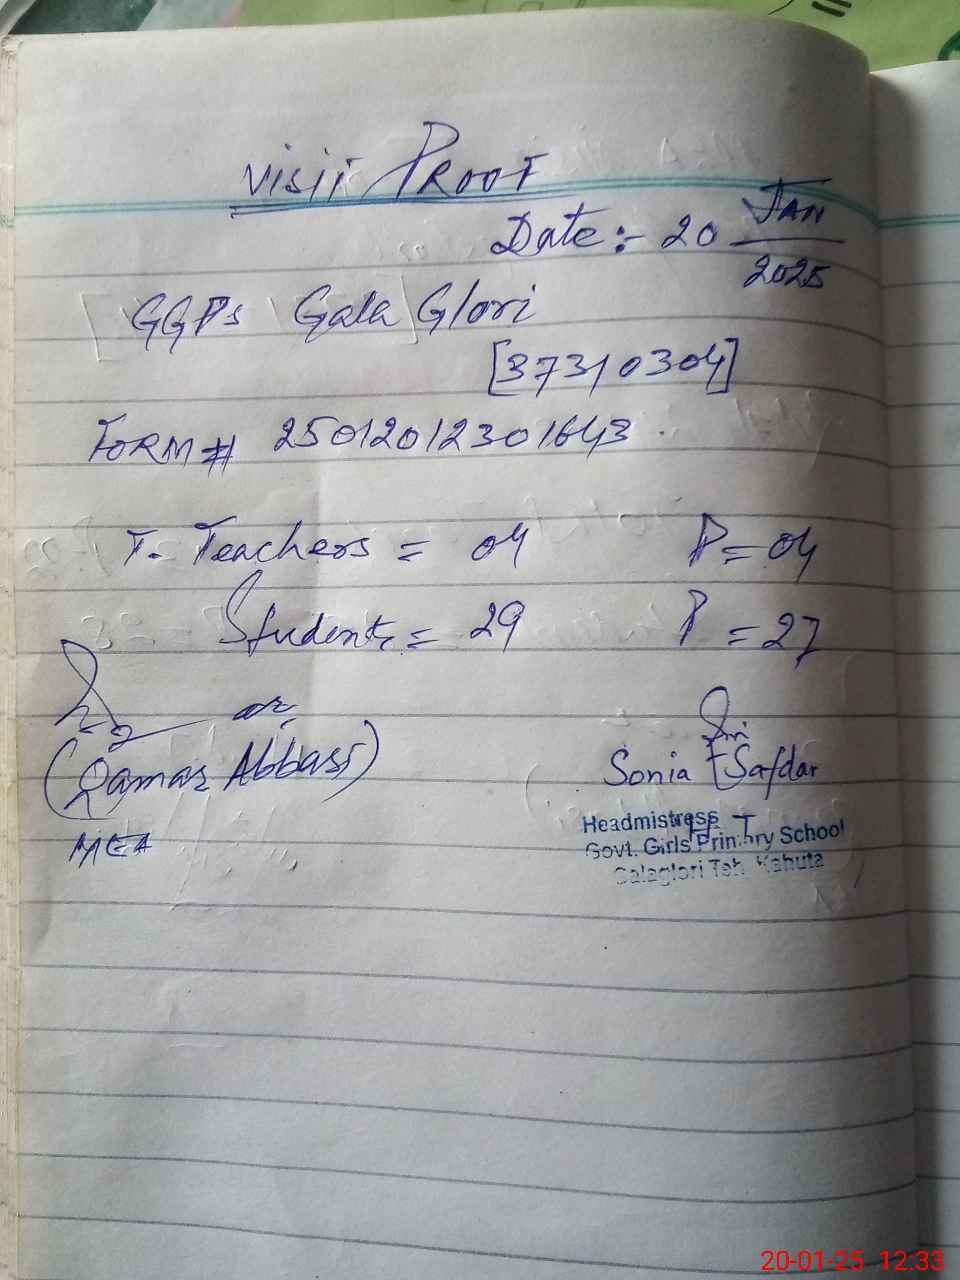 Visit Proof
Date:- 20 Jan
2025
GGPS Gala Glori
[37310304]
Form # 25012012301643
T. Teachers = 04 P = 04
Students = 29 P = 27
(Qamar Abbasi) Sonia Safdar
MEA
Headmistress
Govt. Girls Primary School
Galaglori Teh. Kahuta
20-01-25 12:33